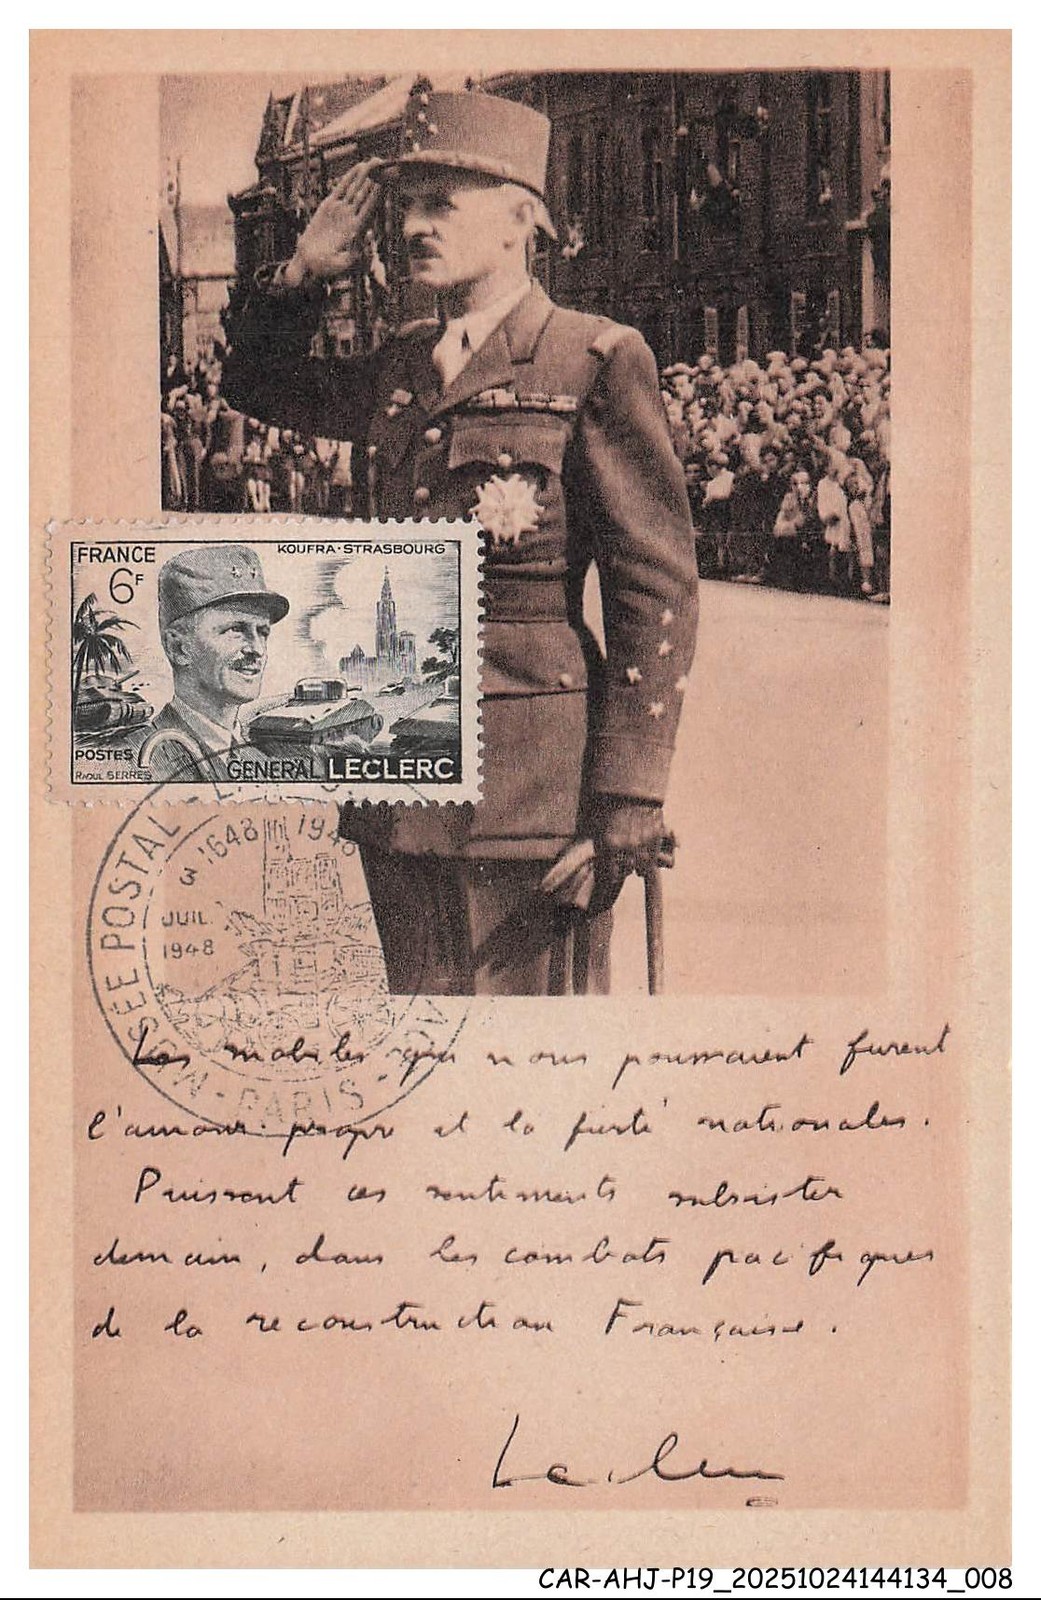 FRANCE
KOUFRA-STRASBOURG
6F
POSTES
RAOUL SERRES
GENERAL LECLERC
MUSÉE POSTAL
1648 1948
3
JUIL.
1948
PARIS
Les mobiles qui nous poussaient furent
l'amour propre et la fierté nationales.
Puissent ces sentiments subsister
demain, dans les combats pacifiques
de la reconstruction Française.
Leclerc
CAR-AHJ-P19_20251024144134_008